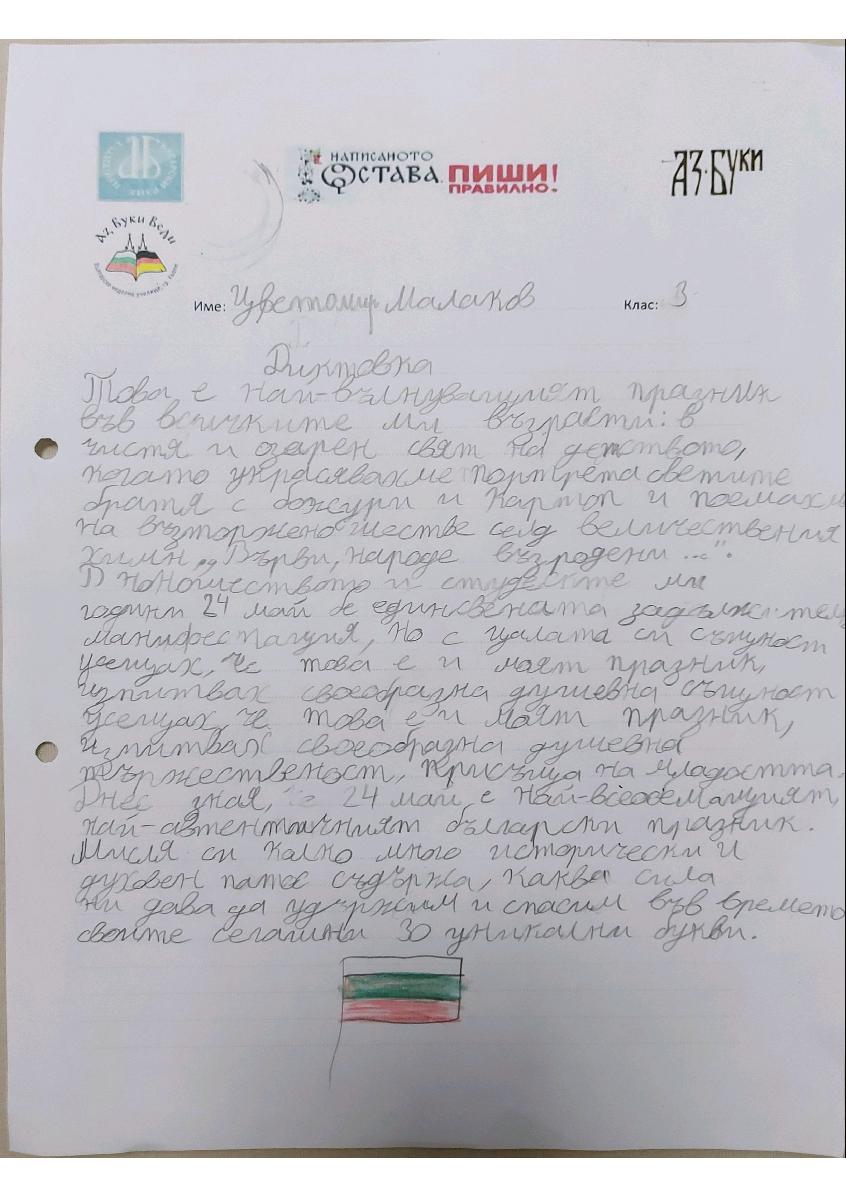 НАПИСАНОТО
ОСТАВА. ПИШИ!
ПРАВИЛНО.
АЗ·БУКИ
Аз Буки Веди
Име: Цветомир Малаков Клас: 3
Диктовка
Това е най-вълнуващият празник
във всичките ми възрасти: в
чистя и озарен свят на детството,
когато украсявахме портрета светите
братя с божури и картоп и поемахм
на възторжено шестве след величествения
химн „Върви, народе възродени ...“.
В юношеството и студеските ми
години 24 май бе единсвената задължител
манифестация, но с цялата си същност
усещах, че това е и моят празник,
изпитвах своеобразна душевна същност
усещах, че това е и моят празник,
изпитвах своеобразна душевна
тържественост, присъща на младостта.
Днес зная, че 24 май е най-всеобемащият,
най-автентичният български празник.
Мисля си колко много исторически и
духовен патос съдържа, каква сила
ни дава да удържим и спасим във времето
своите сегашни 30 уникални букви.